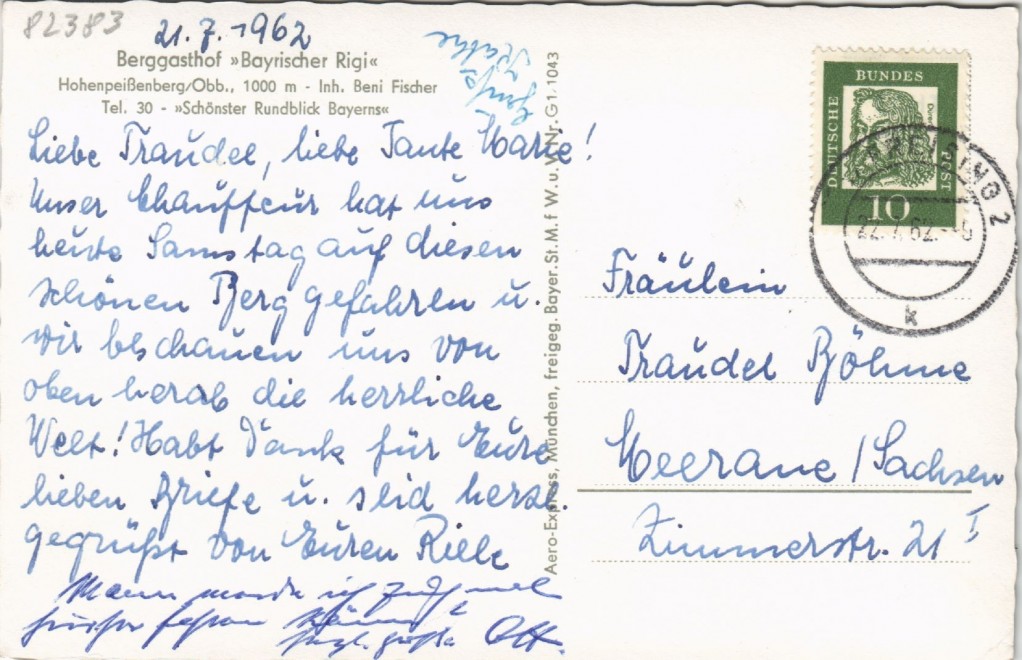 82383
21.7.1962
Berggasthof »Bayrischer Rigi«
Hohenpeißenberg/Obb., 1000 m - Inh. Beni Fischer
Tel. 30 - »Schönster Rundblick Bayerns«
Liebe Traudel, liebe Tante Marie!
Unser Chauffeur hat uns
heute Samstag auf diesen
schönen Berg gefahren u.
wir beschauen uns von
oben herab die herrliche
Welt! Habt Dank für Eure
lieben Briefe u. seid herzl.
gegrüßt von Euren
ich
Aero-Express, München, freigeg. Bayer. St. M. f. W. u. V. Nr. G 1/1043
DEUTSCHE
BUNDES
POST
10
22.7.62
2
k
Fräulein
Traudel Böhme
Meerane / Sachsen
Zimmerstr. 21 I